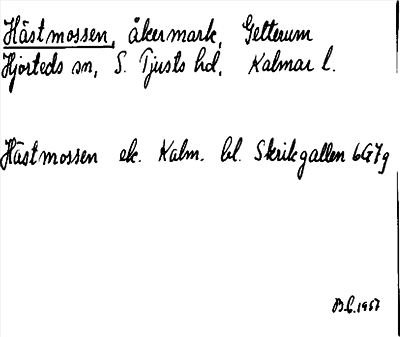 Hästmossen, åkermark, Gelterum
Hjorteds sn, S. Tjusts hd, Kalmar l.
Hästmossen ek. Kalm. bl. Skrikgallen 6G7g
B.C. 1957